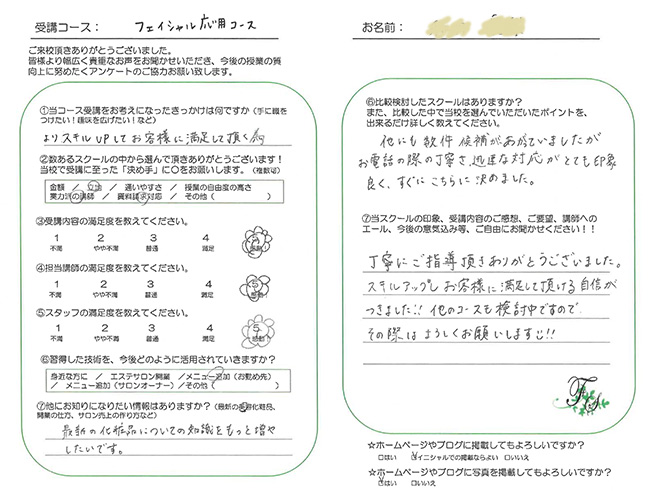 受講コース： フェイシャル応用コース
ご来校頂きありがとうございました。
皆様より幅広く貴重なお声をお聞かせいただき、今後の授業の質
向上に努めたくアンケートのご協力お願い致します。
①当コース受講をお考えになったきっかけは何ですか（手に職を
つけたい！趣味を広げたい！など）
よりスキルUPしてお客様に満足して頂く為
②数あるスクールの中から選んで頂きありがとうございます！
当校で受講に至った「決め手」に〇をお願いします。（複数可）
金額 ／ 立地 ／ 通いやすさ ／ 授業の自由度の高さ
実力派の講師 ／ 資料請求対応 ／ その他（ ）
③受講内容の満足度を教えてください。
1 2 3 4 5
不満 やや不満 普通 満足 感動！
④担当講師の満足度を教えてください。
1 2 3 4 5
不満 やや不満 普通 満足 感動！
⑤スタッフの満足度を教えてください。
1 2 3 4 5
不満 やや不満 普通 満足 感動！
⑥習得した技術を、今後どのように活用されていきますか？
身近な方に ／ エステサロン開業 ／メニュー追加（お勤め先）
／ メニュー追加（サロンオーナー）／その他（ ）
⑦他にお知りになりたい情報はありますか？（最新の美容化粧品、
開業の仕方、サロン売上の作り方など）
最新の化粧品についての知識をもっと増や
したいです。
お名前：
⑥比較検討したスクールはありますか？
また、比較した中で当校を選んでいただいたポイントを、
出来るだけ詳しく教えてください。
他にも数件候補があがっていましたが
お電話の際の丁寧さ、迅速な対応がとても印象
良く、すぐにこちらに決めました。
⑦当スクールの印象、受講内容のご感想、ご要望、講師への
エール、今後の意気込み等、ご自由にお聞かせください！！
丁寧にご指導頂きありがとうございました。
スキルアップしお客様に満足して頂ける自信が
つきました!! 他のコースも検討中ですので
その際はよろしくお願いします!!
☆ホームページやブログに掲載してもよろしいですか？
□はい □イニシャルでの掲載ならよい □いいえ
☆ホームページやブログに写真を掲載してもよろしいですか？
□はい □いいえ